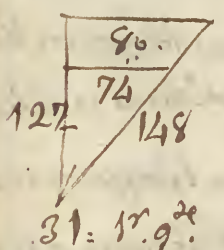 80.
74
127 148
31: 1r. 9